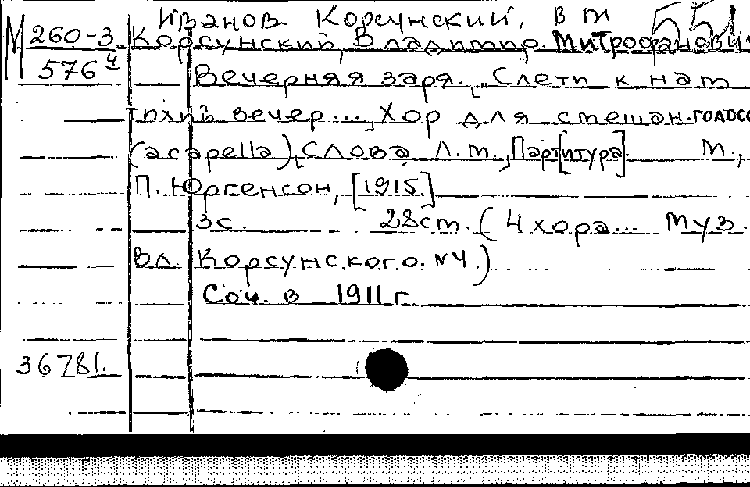 Иванов Корсунский, В М 551
М 260-3 Корсунский, Владимир Митрофанович
576 4 Вечерняя заря. „Слети к нам
тихий вечер..." Хор для смешан. голосов
(a capella), Слова Л. М., Парт[итура] М.,
П. Юргенсон, [1915]
3с. 28см. (4 хора... Муз.
Вл. Корсунского. №4.)
Соч. в 1911 г.
36781.